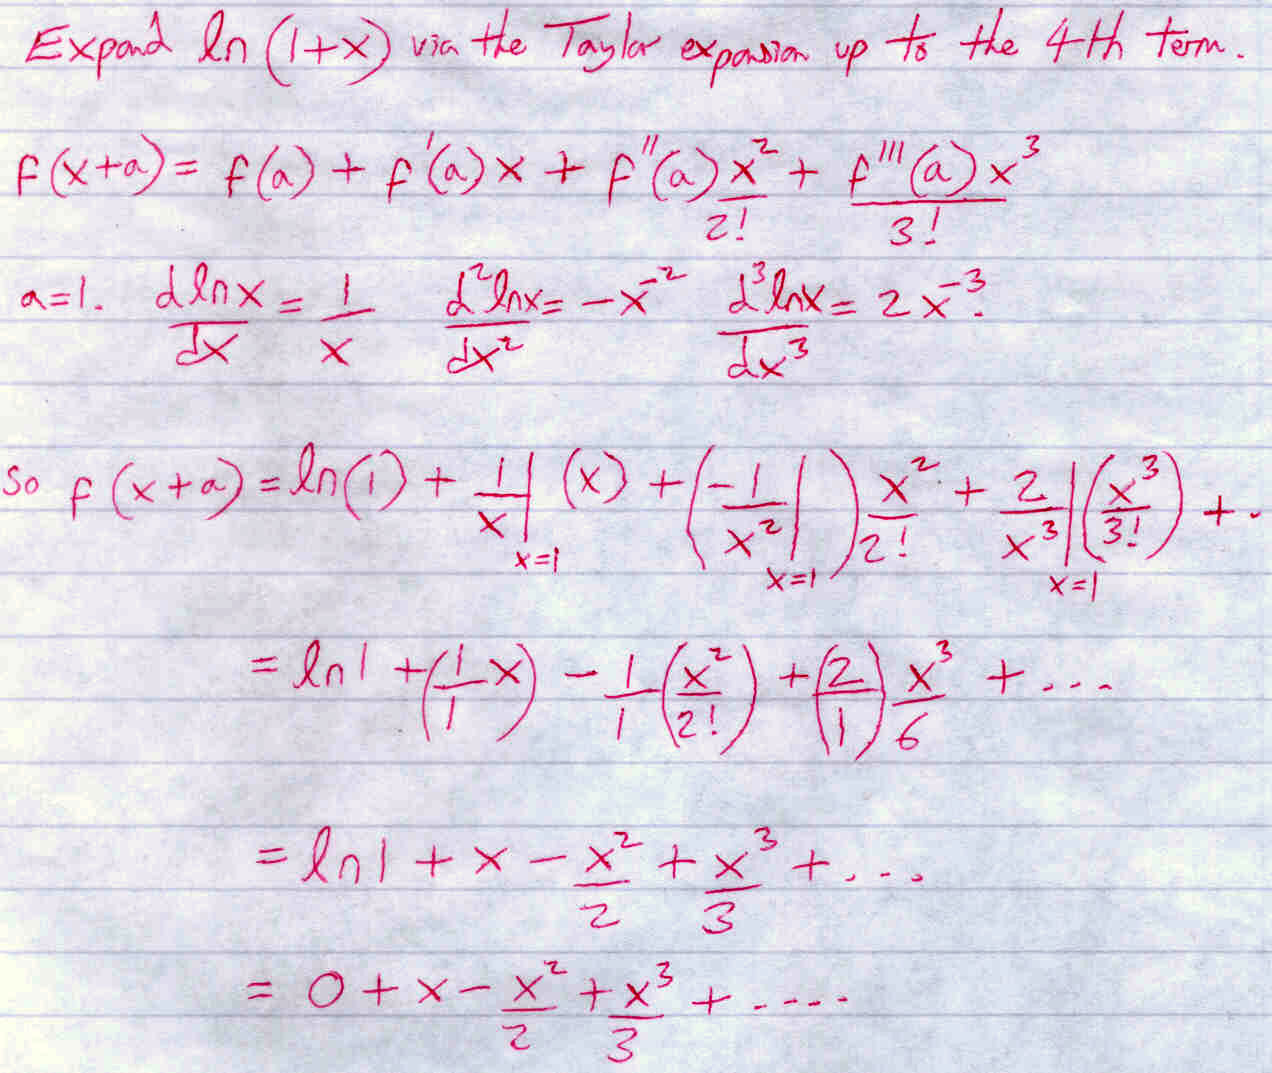 Expand ln (1+x) via the Taylor expansion up to the 4th term.
f(x+a) = f(a) + f'(a)x + f''(a)x²/2! + f'''(a)x³/3!
a=1. dlnx/dx = 1/x d²lnx/dx² = -x⁻² d³lnx/dx³ = 2x⁻³.
So f(x+a) = ln(1) + 1/x|ₓ₌₁ (x) + (-1/x²|ₓ₌₁) x²/2! + 2/x³|ₓ₌₁ (x³/3!) + .
= ln1 + (1/1 x) - 1/1 (x²/2!) + (2/1) x³/6 + ...
= ln1 + x - x²/2 + x³/3 + ...
= 0 + x - x²/2 + x³/3 + ....